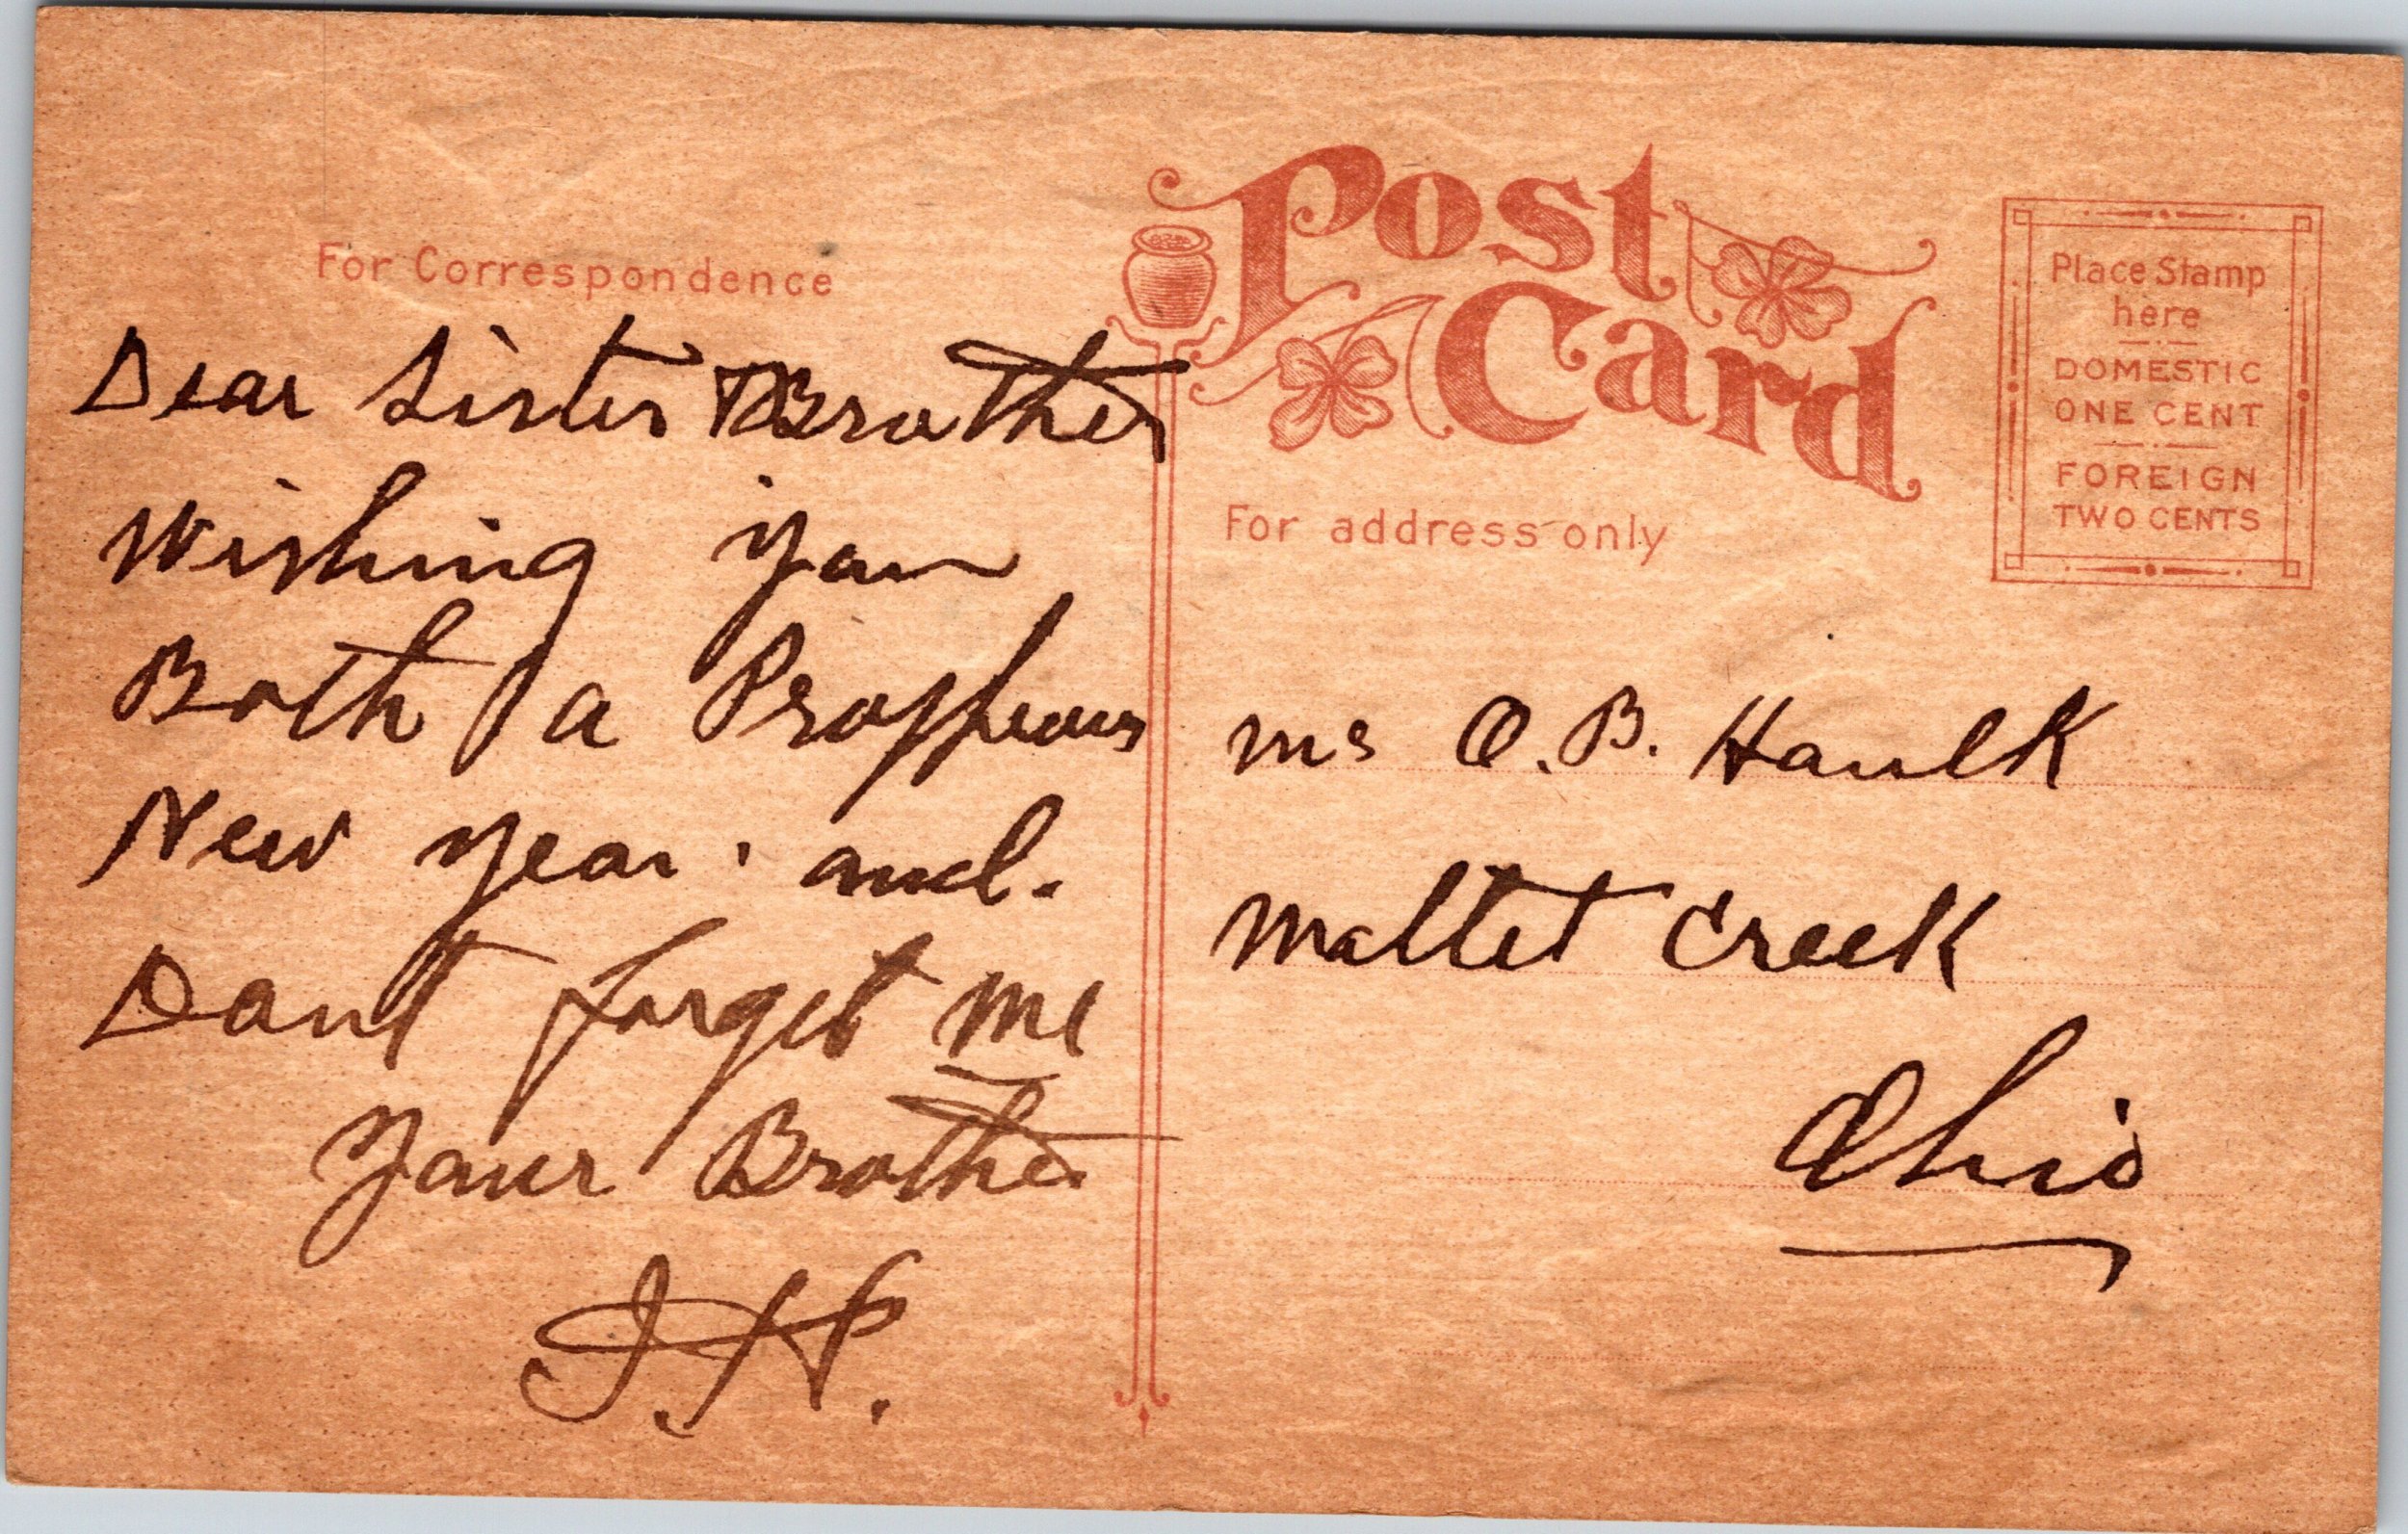 Post
Card
For Correspondence
Dear Sister & Brother
Wishing you
Both a Prosperous
New year. and.
Dont forget me
your Brother
J. H.
Place Stamp
here
DOMESTIC
ONE CENT
FOREIGN
TWO CENTS
For address only
Mr O. B. Haulk
Maltet Creek
Ohio